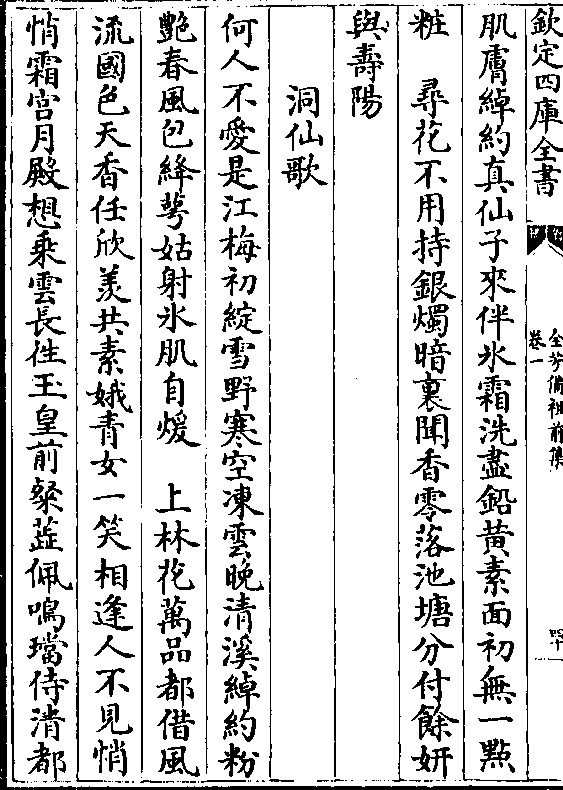 欽定四庫全書
全芳備祖前集
卷一
四十
肌膚綽約真仙子來伴氷霜洗盡鉛黄素面初無一點
粧　尋花不用持銀燭暗裏聞香零落池塘分付餘妍
與壽陽
洞仙歌
何人不愛是江梅初綻雪野寒空凍雲晚清溪綽約粉
艷春風包絳萼姑射氷肌自煖　上林花萬品都借風
流國色天香任欣羨共素娥青女一笑相逢人不見悄
悄霜宫月殿想乘雲長往玉皇前粲蘂佩鳴璫侍清都